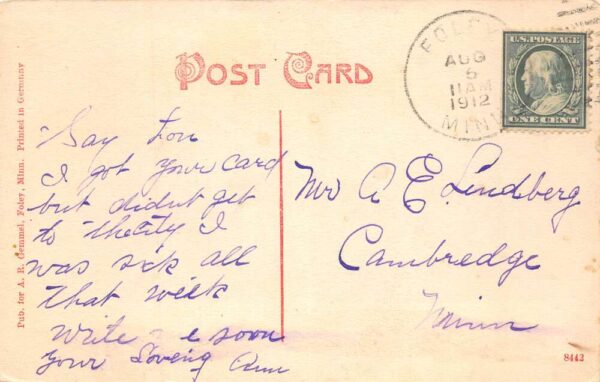 POST CARD
FOLEY
AUG
5
11 AM
1912
MINN
U.S. POSTAGE
ONE CENT
Say
I got your card
but didnt get
to the city I
was sick all
that week
write e soon
your Loveing
Mr A E Lindberg
Cambredge
Minn
Pub. for A. R. Gemmel, Foley, Minn. Printed in Germany
8442